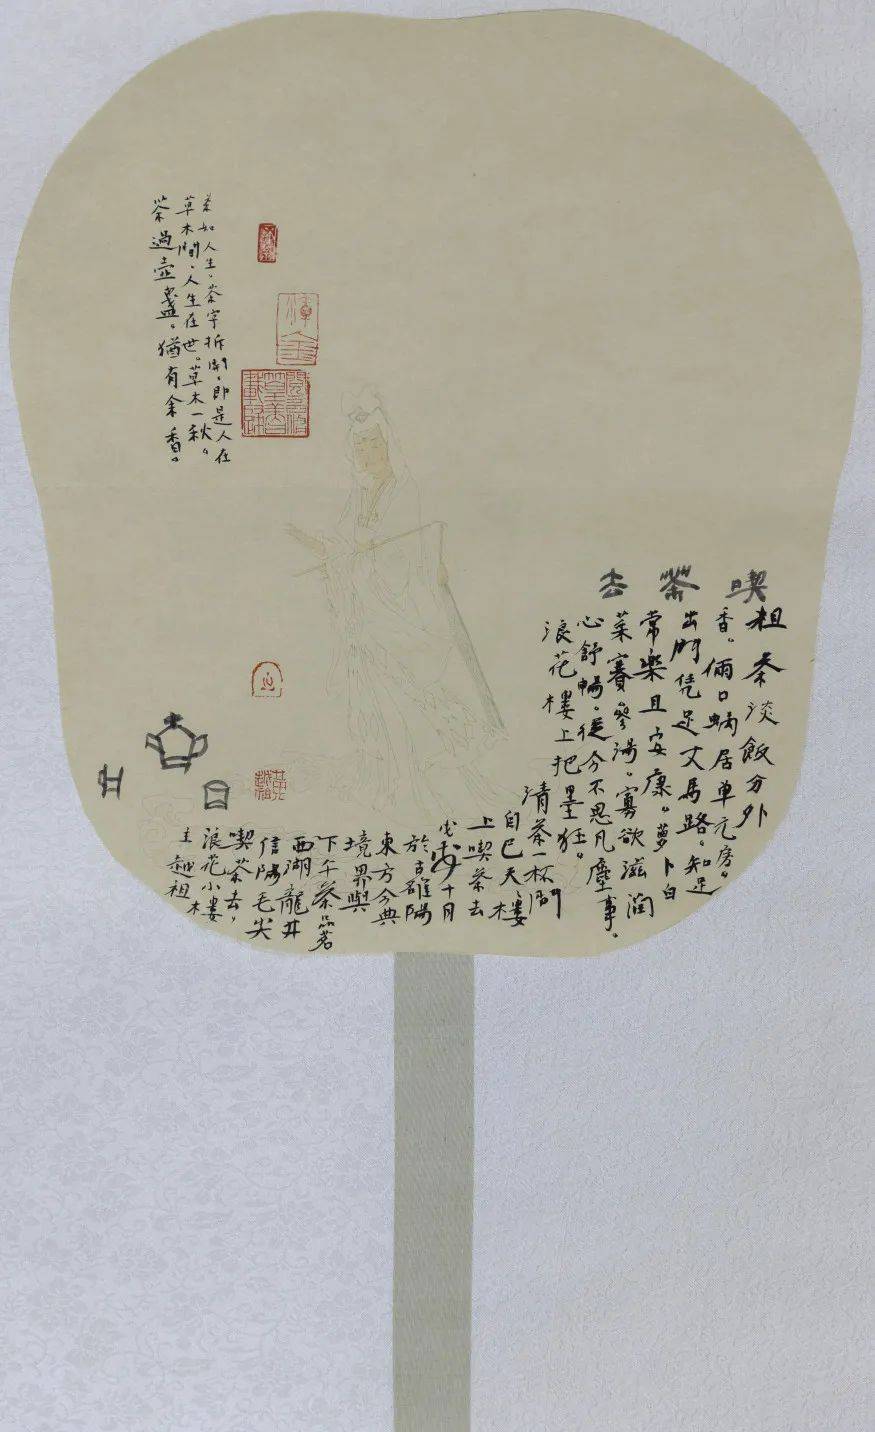 喫茶去
粗茶淡飯分外
香。倆口蝸居單元房。
出門凭足丈馬路。知足
常樂且安康。蘿卜白
菜賽參湯。寡欲滋潤
心舒暢。從今不思凡塵事。
浪花樓上把墨狂。
清茶一杯閒
自己天樓
上喫茶去
十月
於古雒陽
東方今典
境界與
下午茶品茗
西湖龍井
信陽毛尖
喫茶去，
浪花小樓
主越祖
茶如人生。茶字拆開。即是人在
草木間。人生在世。草木一秋。
茶過壺盞。猶有余香。